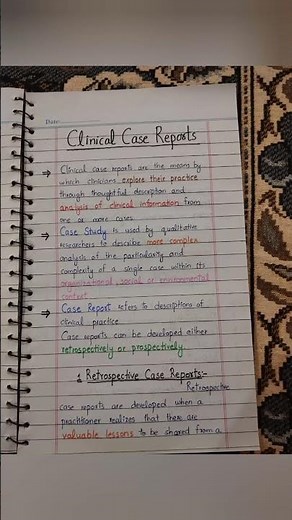 Date:
Clinical Case Reports
⇒ Clinical case reports are the means by
which clinicians explore their practice
through thoughtful description and
analysis of clinical information from
one or more cases
⇒ Case Study is used by qualitative
researchers to describe more complex
analysis of the particularity and
complexity of a single case within its
organizational, social or environmental
context
⇒ Case Report refers to descriptions of
clinical practice
Case reports can be developed either
retrospectively or prospectively.
1 Retrospective Case Reports:-
Retrospective
case reports are developed when a
practitioner realizes that there are
valuable lessons to be shared from a